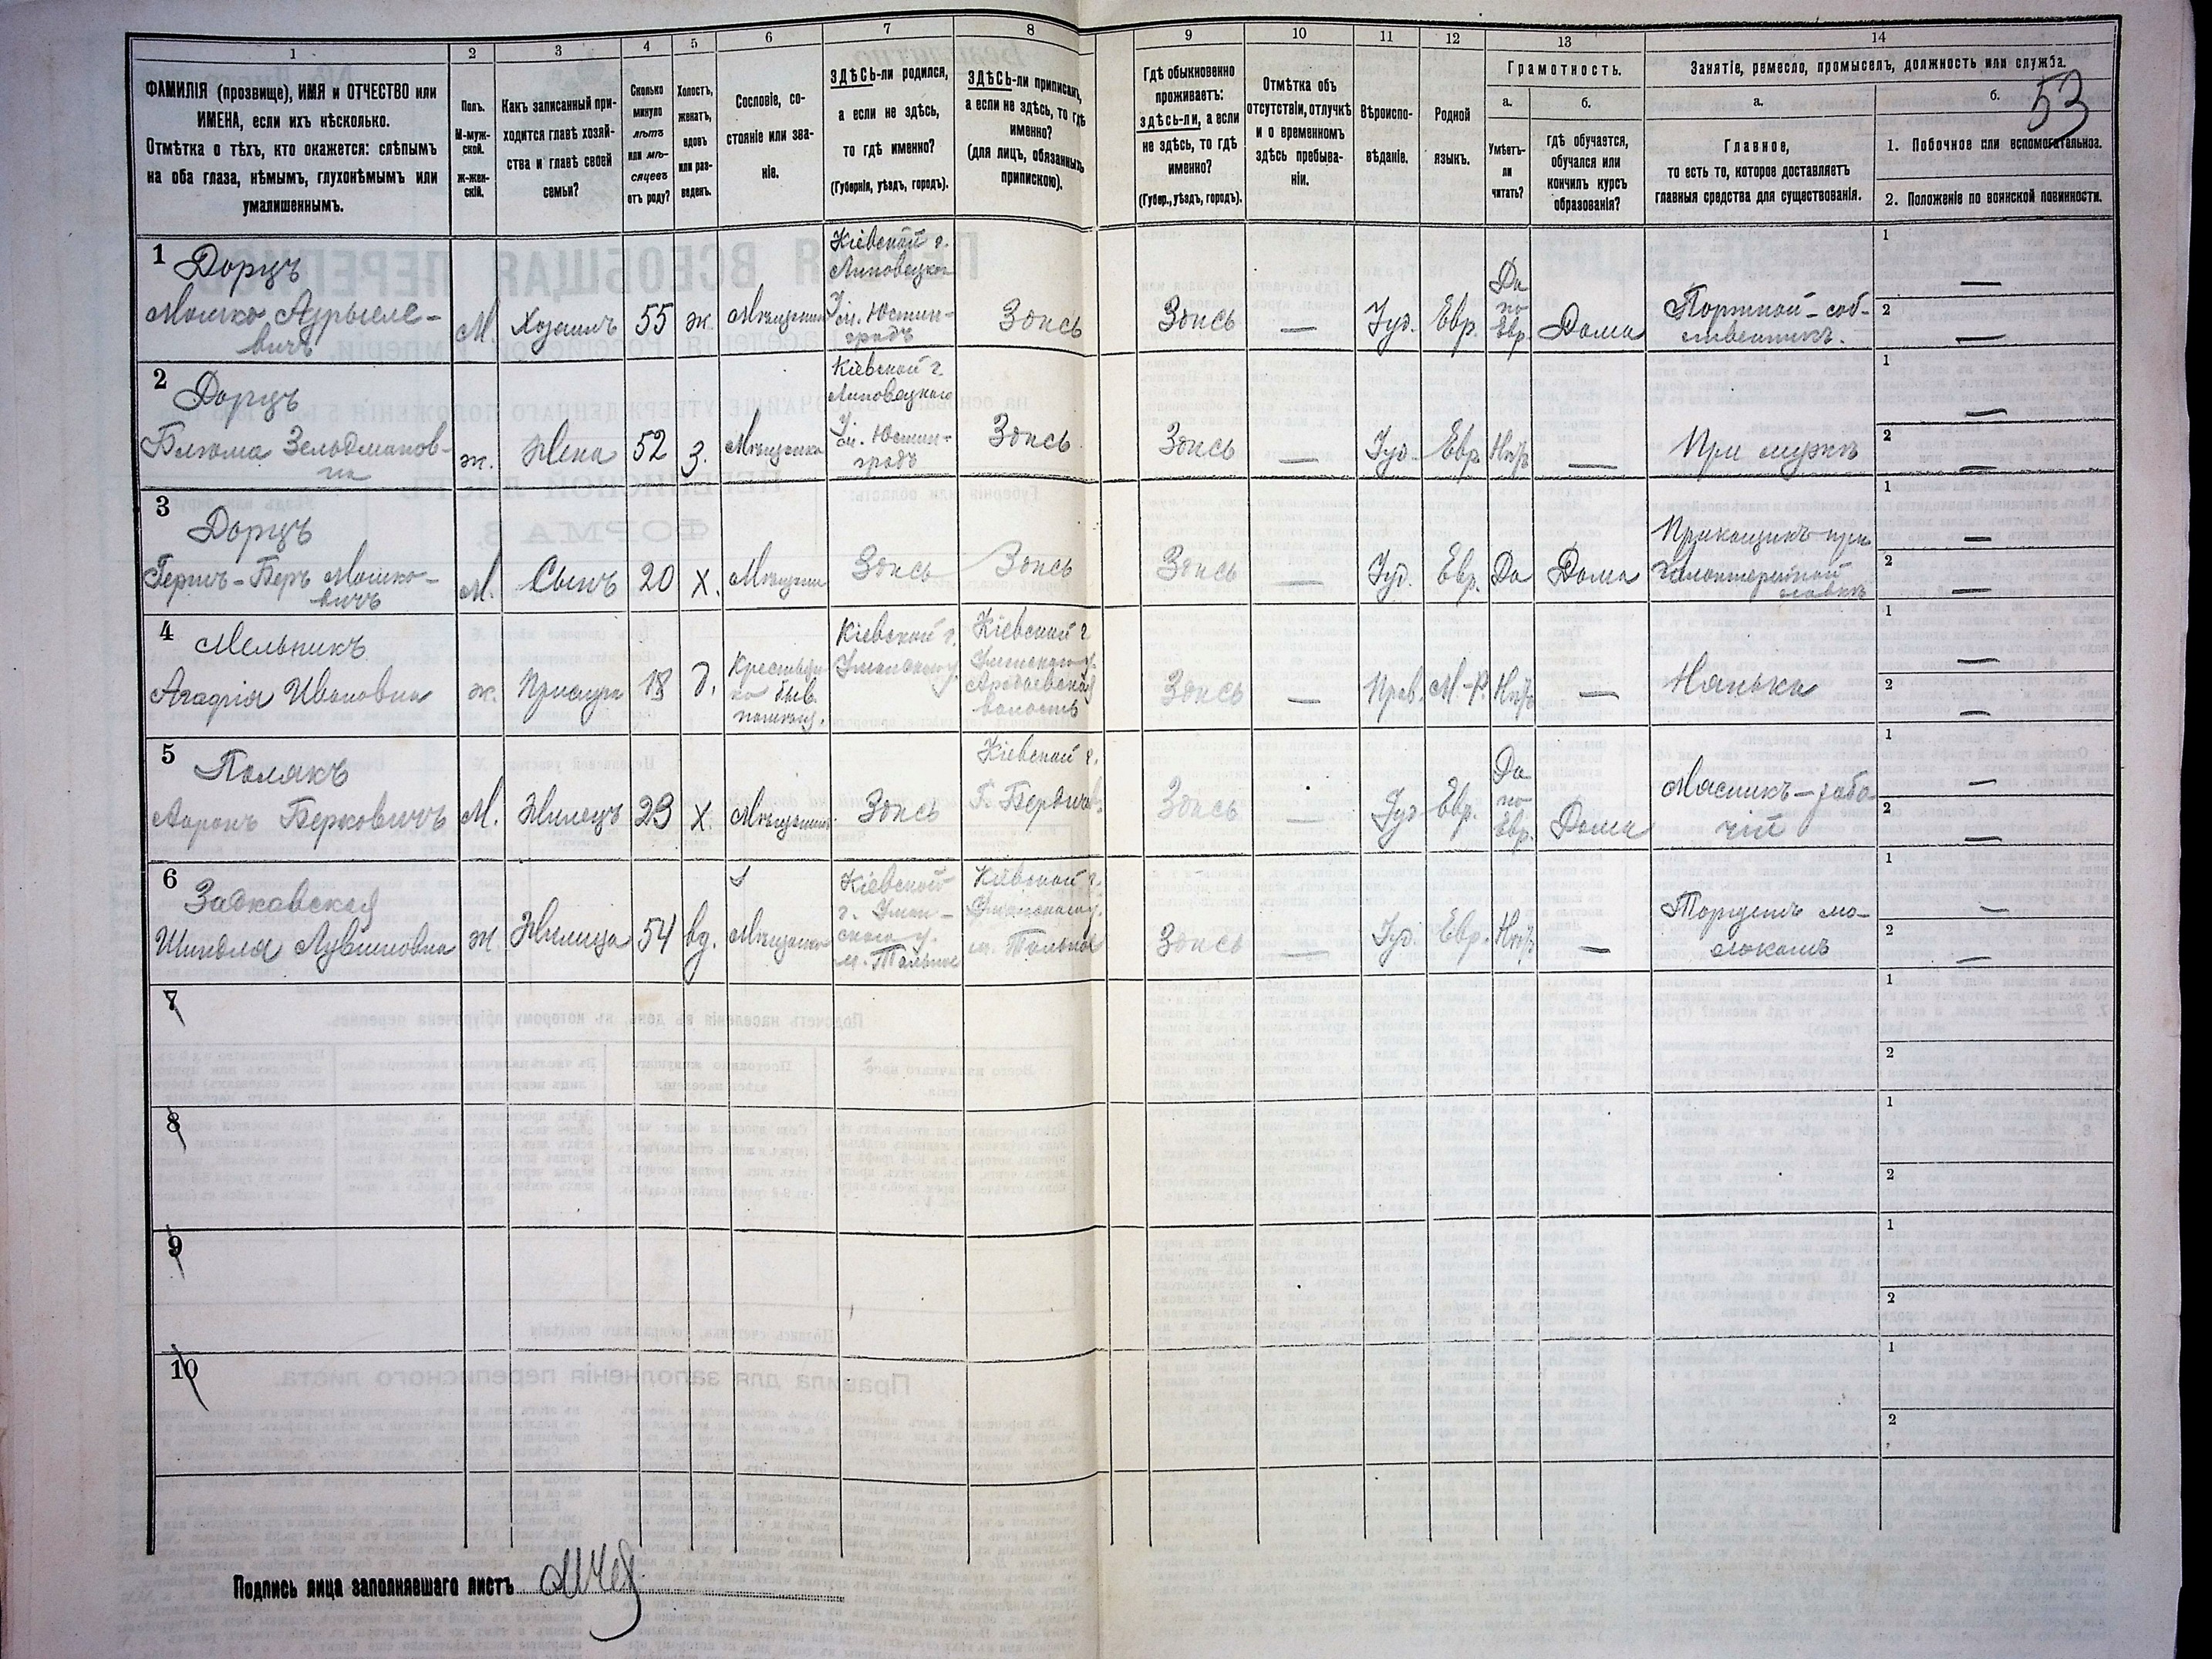 1 2 3 4 5 6 7 8 9 10 11 12 13 14
ФАМИЛІЯ (прозвище), ИМЯ и ОТЧЕСТВО или
ИМЕНА, если ихъ нѣсколько.
Отмѣтка о тѣхъ, кто окажется: слѣпымъ
на оба глаза, нѣмымъ, глухонѣмымъ или
умалишеннымъ.
Полъ.
М-муж-
ской.
ж-жен-
скій.
Какъ записанный при-
ходится главѣ хозяй-
ства и главѣ своей
семьи?
Сколько
минуло
лѣтъ
или мѣ-
сяцевъ
отъ роду?
Холостъ,
женатъ,
вдовъ
или раз-
веденъ.
Сословіе, со-
стояніе или зва-
ніе.
ЗДѢСЬ-ли родился,
а если не здѣсь,
то гдѣ именно?
(Губернія, уѣздъ, городъ).
ЗДѢСЬ-ли приписанъ,
а если не здѣсь, то гдѣ
именно?
(для лицъ, обязанныхъ
припискою).
Гдѣ обыкновенно
проживаетъ:
здѣсь-ли, а если
не здѣсь, то гдѣ
именно?
(Губер., уѣздъ, городъ).
Отмѣтка объ
отсутствіи, отлучкѣ
и о временномъ
здѣсь пребыва-
ніи.
Вѣроиспо-
вѣданіе.
Родной
языкъ.
Грамотность.
а.
Умѣетъ-
ли
читать?
б.
гдѣ обучается,
обучался или
кончилъ курсъ
образованія?
Занятіе, ремесло, промыселъ, должность или служба.
а.
Главное,
то есть то, которое доставляетъ
главныя средства для существованія.
б.
53
1. Побочное или вспомогательное.
2. Положеніе по воинской повинности.
1 Дорцъ
Мошко Азрыеле-
вичъ
М. Хозяинъ 55 ж. Мѣщанинъ
Кіевской г.
Липовецкаго
у. м. Юстин-
градъ
Здѣсь Здѣсь — Іуд. Евр.
Да
по
Евр.
Дома
Портной-соб-
ственникъ.
1 —
2 —
2 Дорцъ
Блюма Зельдманов-
на
ж. Жена 52 З. Мѣщанка
Кіевской г.
Липовецкаго
у. м. Юстин-
градъ
Здѣсь Здѣсь — Іуд. Евр. Нѣтъ —
При мужѣ
1 —
2 —
3 Дорцъ
Гершъ-Беръ Мошко-
вичъ
М. Сынъ 20 Х. Мѣщанин
Здѣсь Здѣсь Здѣсь — Іуд. Евр. Да Дома
Прикащикъ при
галантерейной
лавкѣ
1 —
2 —
4 Мельникъ
Агафія Ивановна
ж. Прислуга 18 д.
Крестьян-
ка быв.
помѣщ.
Кіевской г.
Уманскаго у.
Кіевской г.
Уманскаго у.
волость
Здѣсь — Прав. М-Р. Нѣтъ —
Нянька
1 —
2 —
5 Полякъ
Ааронъ Берковичъ
М. Жилецъ 23 Х. Мѣщанинъ
Здѣсь
Кіевской г.
Г. Бердичев.
Здѣсь — Іуд. Евр.
Да
по
Евр.
Дома
Мясникъ-рабо-
чій
1 —
2 —
6 Задкавская
Шиндля Лувшиновна
ж. Жилица 54 вд. Мѣщанка
Кіевской
г. Уман-
скаго у.
м. Тальное
Кіевской г.
Уманскаго у.
м. Тальное
Здѣсь — Іуд. Евр. Нѣтъ —
Торгуетъ мо-
локомъ
1 —
2 —
7
1
2
8
1
2
9
1
2
10
1
2
Подпись лица заполнявшаго листъ